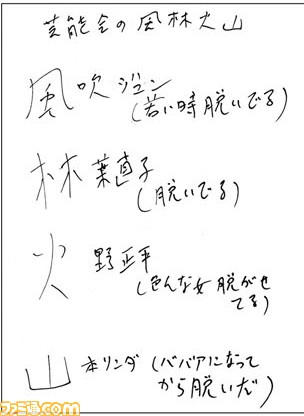 芸能会の風林火山
風吹ジュン
(若い時脱いでる)
林葉直子
(脱いでる)
火野正平
(色んな女脱がせ
てる)
山本リンダ(ババアになって
から脱いだ)
ファミ通.com